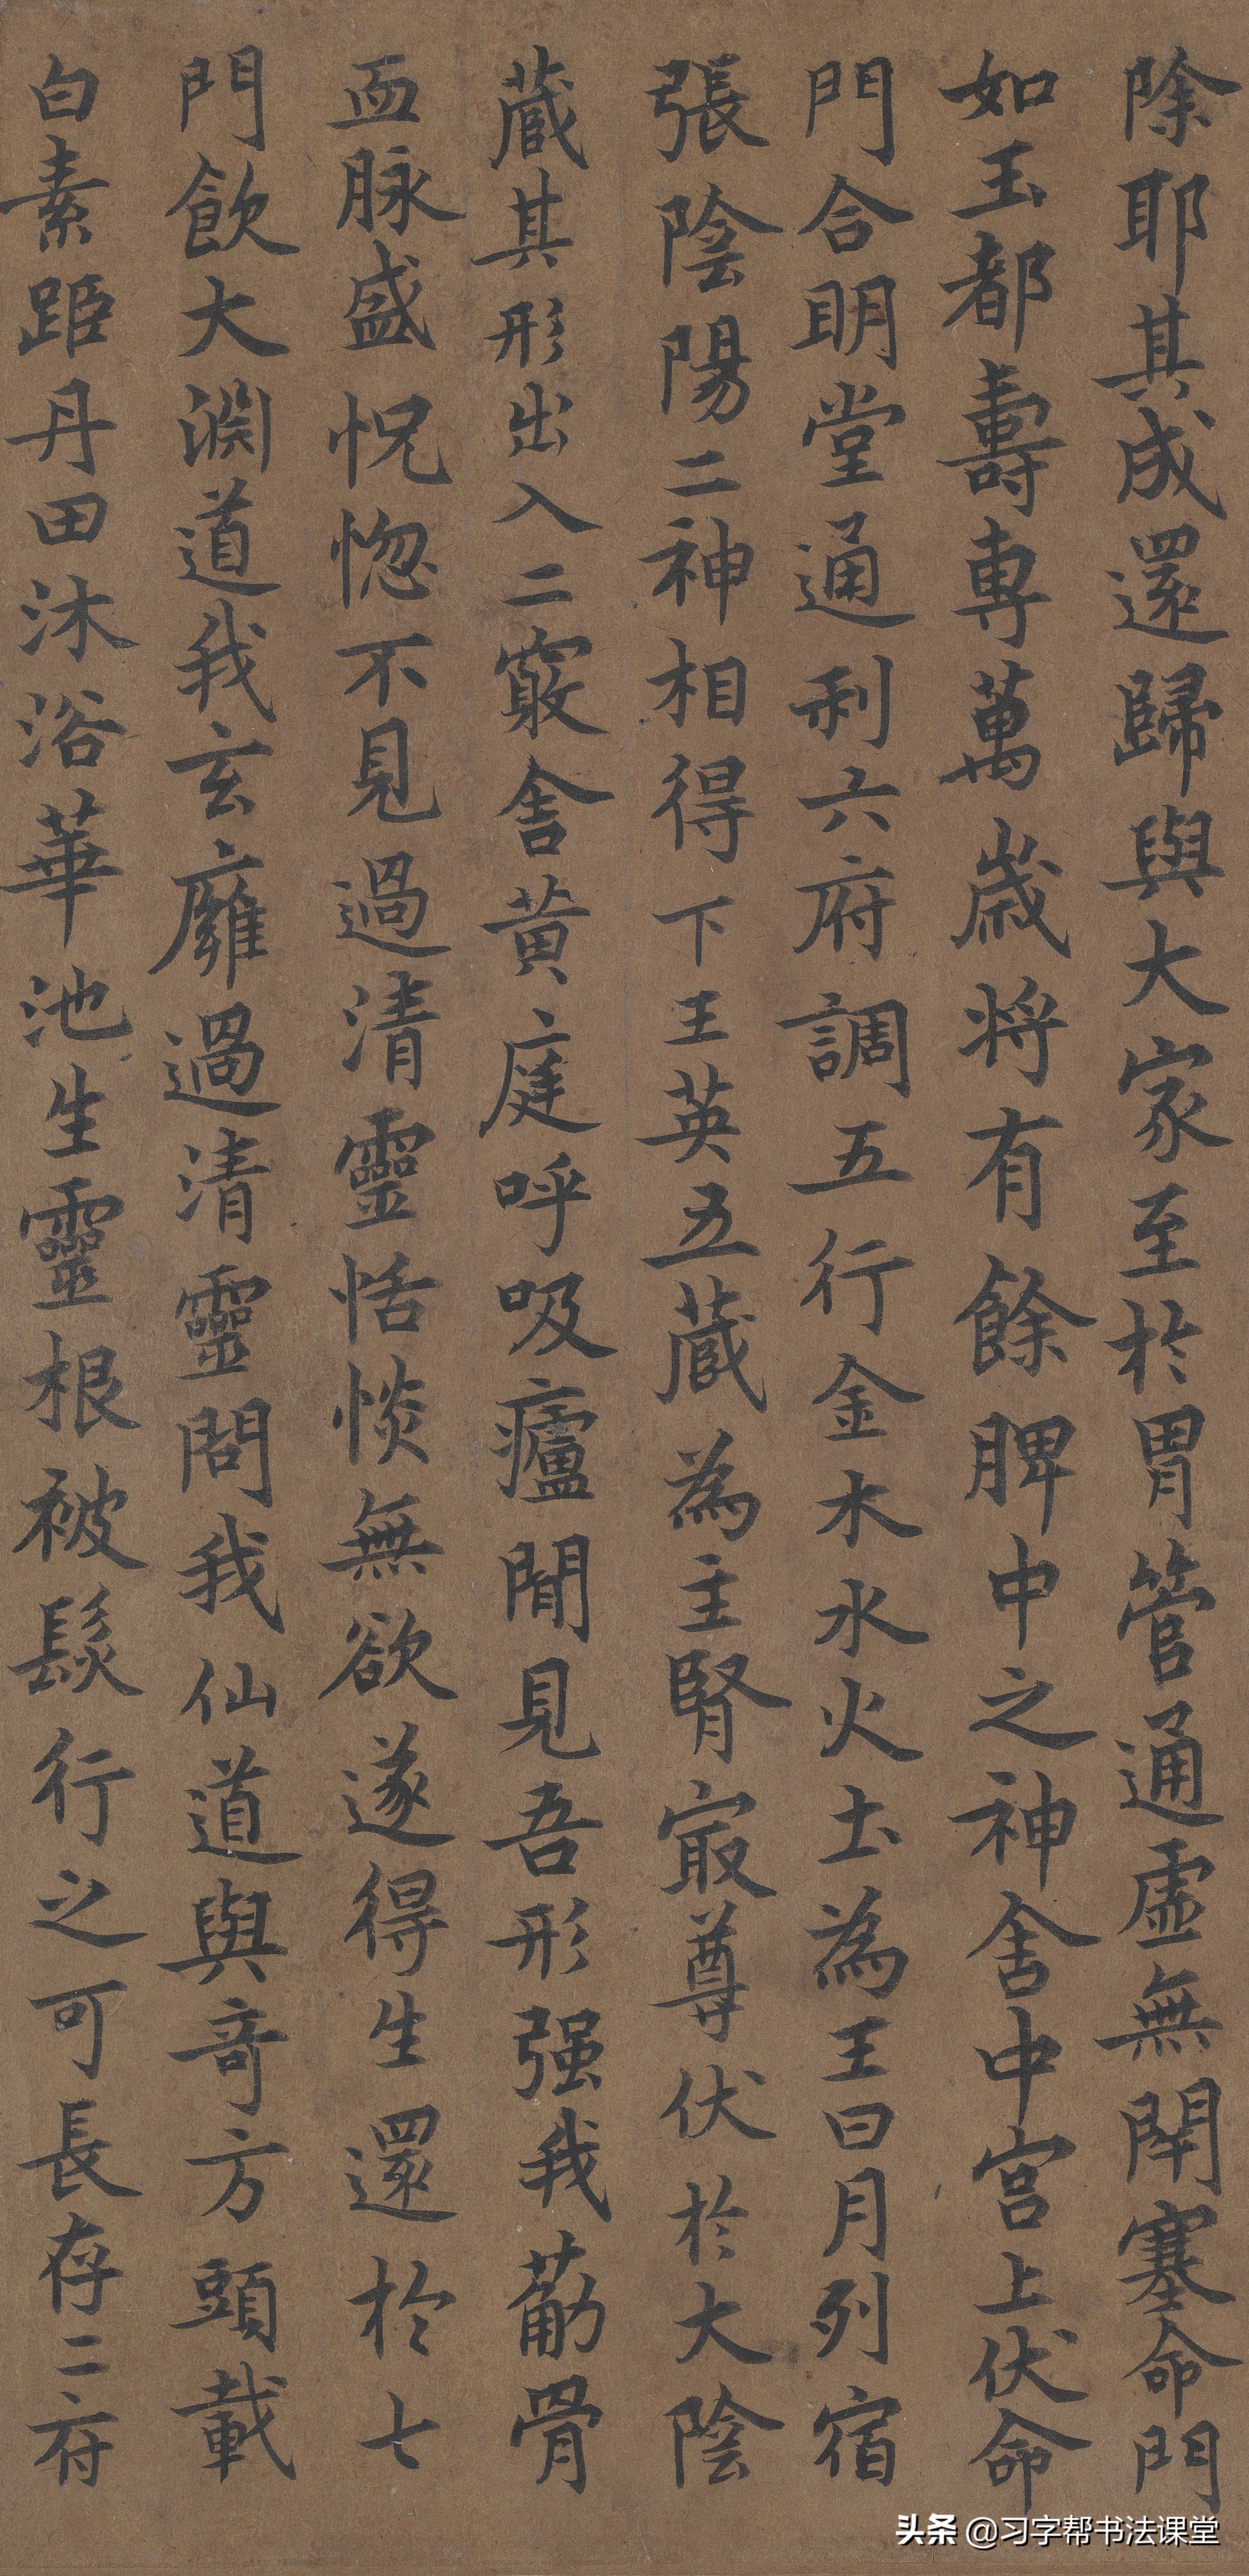 除耶其成還歸與大家至於胃管通虛無閇塞命門
如玉都壽專萬歲將有餘脾中之神舍中宮上伏命
門合明堂通利六府調五行金木水火土為王日月列宿
張陰陽二神相得下王英五藏為主腎冣尊伏於大陰
藏其形出入二竅舍黃庭呼吸廬間見吾形强我筋骨
血脉盛怳惚不見過清靈恬惔無欲遂得生還於七
門飲大淵道我玄廱過清靈問我仙道與奇方頭載
白素距丹田沐浴華池生靈根被髮行之可長存二府
头条 @习字帮书法课堂